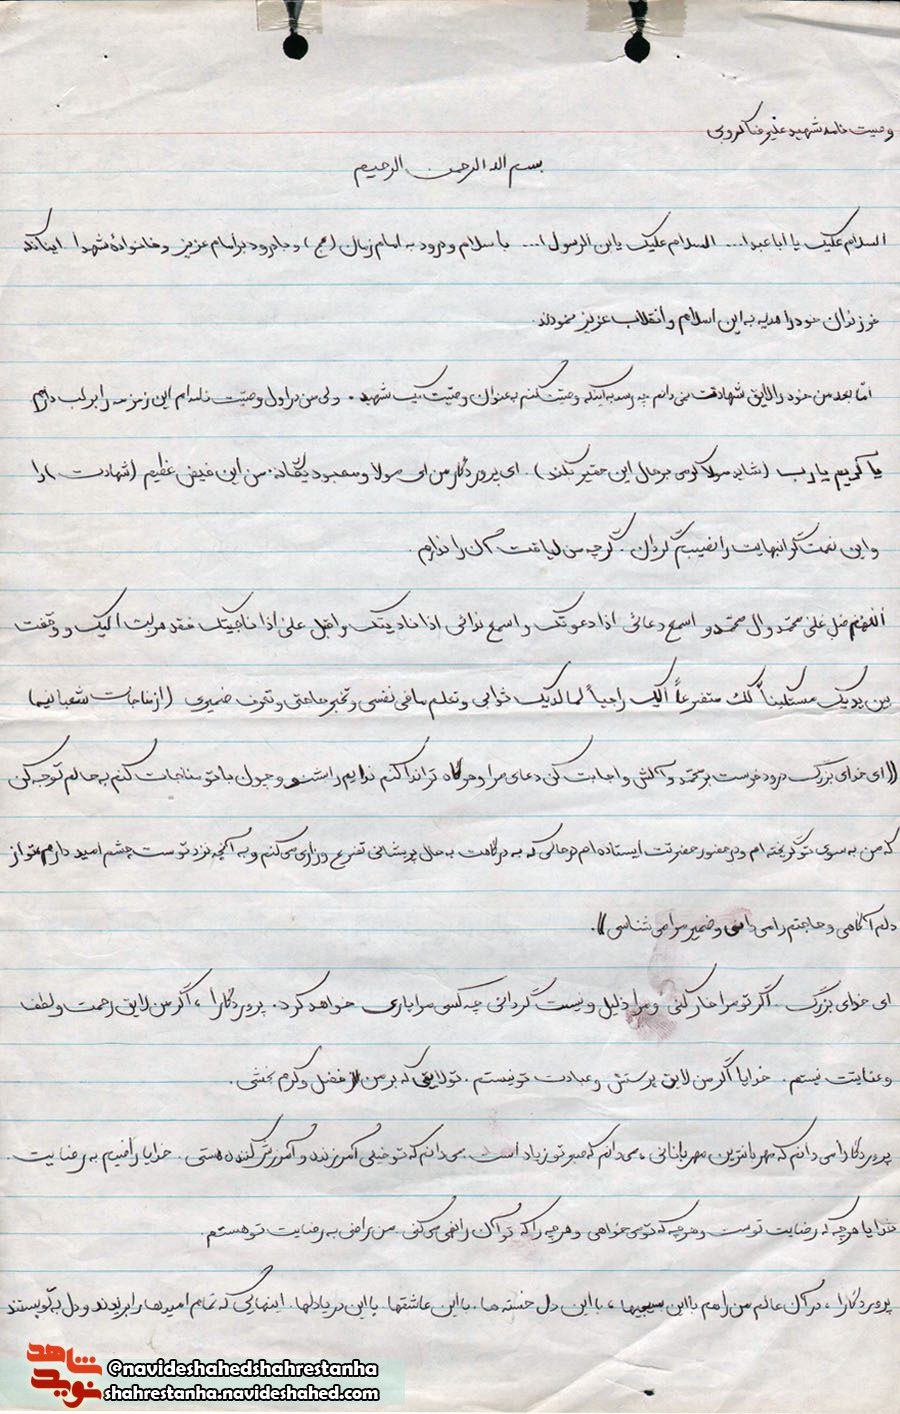 وصیت نامه شهید علیرضا کروبی
بسم الله الرحمن الرحیم
السلام علیک یا ابا عبدا... السلام علیک یابن الرسول ا... با سلام و درود به امام زمان (عج) و با درود بر امام عزیز و خانوادهٔ شهدا اینانکه
فرزندان خود را هدیه به این اسلام و انقلاب عزیز نمودند.
امّا بعد من خود را لایق شهادت نمی دانم چه رسد به اینکه وصیت کنم به عنوان وصیّت یک شهید. ولی من در اول وصیّت نامه ام این زمزمه را بر لب دارم
یا کریم یا رب (شاید مولا کرمی بر حال این حقیر بکند). ای پروردگار من ای مولا و معبود یگانه من این فیض عظیم (شهادت) را
و این نعمت گرانبهایت را نصیبم گردان. گرچه من لیاقت آن را ندارم.
اللهم صل علی محمّد و ال محمّد و اسمع دعائی اذا دعوتک و اسمع ندائی اذا نادیتک و اقبل علیّ اذا ناجیتک فقد هربت الیک و وقفت
بین یدیک مستکیناً لک متضرعاً الیک راجیاً لما لدیک ثوابی و تعلم ما فی نفسی و تخبر حاجتی و تعرف ضمیری (از مناجات شعبانیه)
((ای خدای بزرگ درود فرست بر محمّد و آلش و اجابت کن دعای مرا و هرگاه ترا ندا کنم ندایم را بشنو و چون با تو مناجات کنم به حالم توجه کن
که من به سوی تو گریخته ام و در حضور حضرتت ایستاده ام در حالی که به درگاهت به حال پریشانی تضرع و زاری می کنم و به آنچه نزد توست چشم امید دارم تو از
دلم آگاهی و حاجتم را می دانی و ضمیر مرا می شناسی)).
ای خدای بزرگ. اگر تو مرا خار کنی و مرا ذلیل و نیست گردانی چه کسی مرا یاری خواهد کرد. پروردگارا، اگر من لایق رحمت و لطف
و عنایتت نیستم. خدایا اگر من لایق پرستش و عبادت تو نیستم. تو لایقی که بر من از فضل و کرم بخشی.
پروردگارا می دانم که مهربانترین مهربانانی، می دانم که صبر تو زیاد است. می دانم که تو خیلی آمرزنده و آمرزش کننده هستی. خدایا راضیم به رضایت.
خدایا هرچه که رضایت توست و هرچه که تو می خواهی و هرچه را که تو آن را می کنی من راضی به رضایت تو هستم.
پروردگارا، در آن عالم من را هم با این بسیجیها، با این دل خسته ها. با این عاشقها با این دریادلها. اینهایی که تمام امیدها را بریدند و دل به تو بستند
شاهد
نوید
@navideshahedshahrestanha
shahrestanha.navideshahed.com